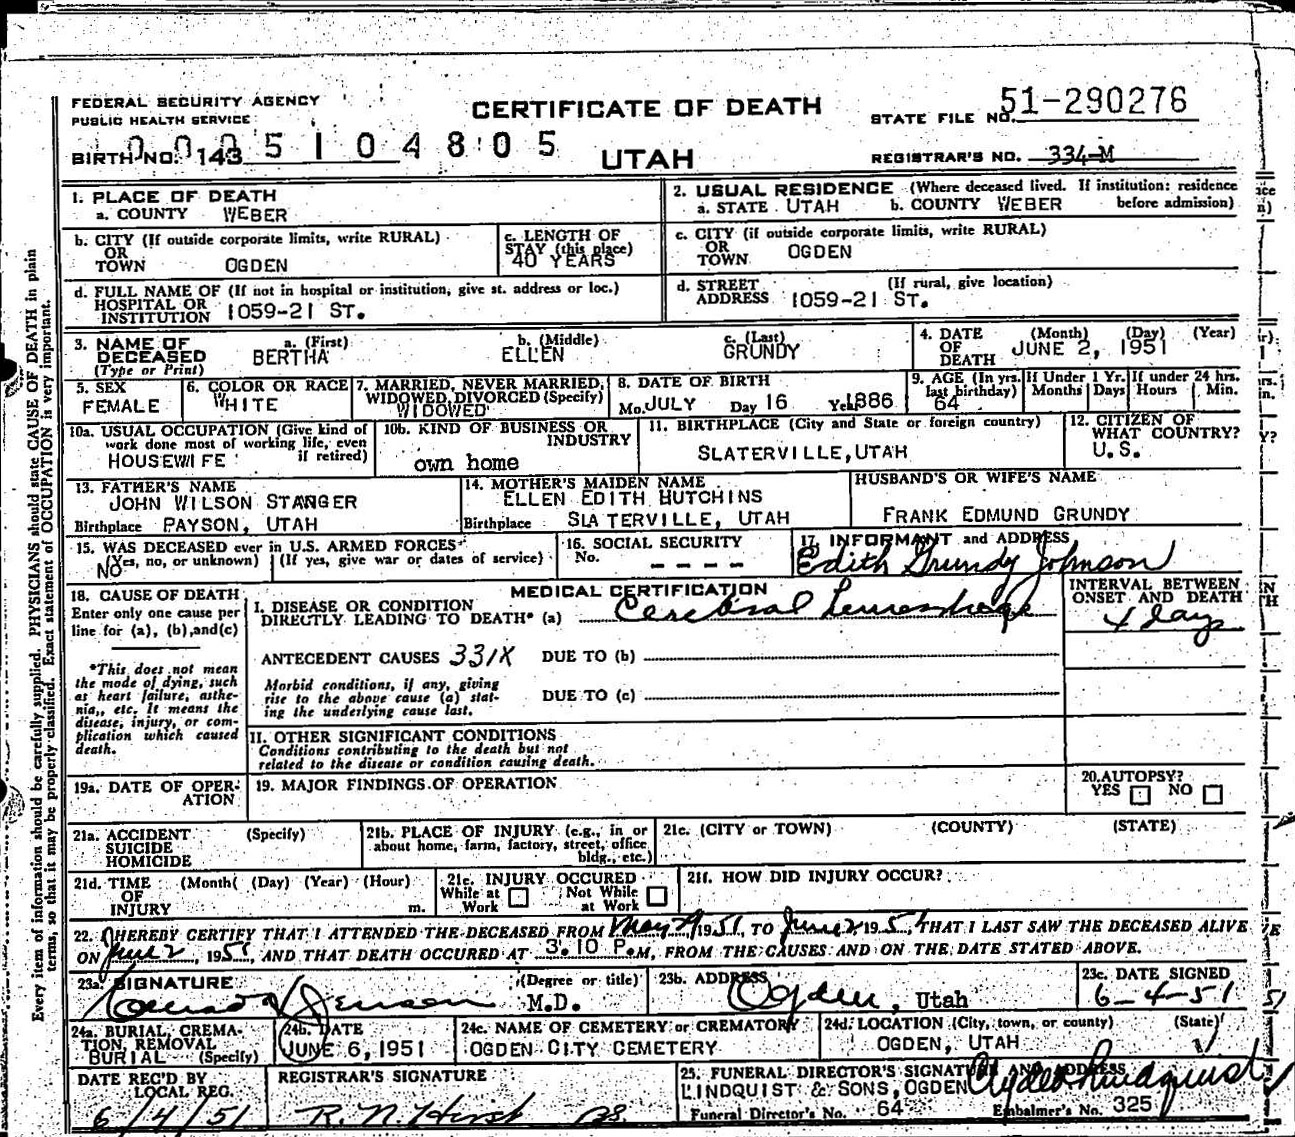 FEDERAL SECURITY AGENCY
PUBLIC HEALTH SERVICE
CERTIFICATE OF DEATH
UTAH
STATE FILE NO. 51-290276
REGISTRAR'S NO. 334-M
BIRTH NO. 143
005104805
1. PLACE OF DEATH
a. COUNTY WEBER
2. USUAL RESIDENCE (Where deceased lived. If institution: residence before admission)
a. STATE UTAH b. COUNTY WEBER
b. CITY (If outside corporate limits, write RURAL)
OR
TOWN OGDEN
c. LENGTH OF
STAY (this place)
40 YEARS
c. CITY (if outside corporate limits, write RURAL)
OR
TOWN OGDEN
d. FULL NAME OF (If not in hospital or institution, give st. address or loc.)
HOSPITAL OR
INSTITUTION 1059-21 ST.
d. STREET (If rural, give location)
ADDRESS 1059-21 ST.
3. NAME OF DECEASED
(Type or Print)
a. (First) BERTHA
b. (Middle) ELLEN
c. (Last) GRUNDY
4. DATE OF DEATH (Month) (Day) (Year)
JUNE 2, 1951
5. SEX
FEMALE
6. COLOR OR RACE
WHITE
7. MARRIED, NEVER MARRIED,
WIDOWED, DIVORCED (Specify)
WIDOWED
8. DATE OF BIRTH
Mo. JULY Day 16 Year 1886
9. AGE (In yrs. last birthday)
64
If Under 1 Yr.
Months Days
If under 24 hrs.
Hours Min.
10a. USUAL OCCUPATION (Give kind of
work done most of working life, even
if retired)
HOUSEWIFE
10b. KIND OF BUSINESS OR
INDUSTRY
own home
11. BIRTHPLACE (City and State or foreign country)
SLATERVILLE, UTAH
12. CITIZEN OF
WHAT COUNTRY?
U.S.
13. FATHER'S NAME
JOHN WILSON STANGER
Birthplace PAYSON, UTAH
14. MOTHER'S MAIDEN NAME
ELLEN EDITH HUTCHINS
Birthplace SLATERVILLE, UTAH
HUSBAND'S OR WIFE'S NAME
FRANK EDMUND GRUNDY
15. WAS DECEASED ever in U.S. ARMED FORCES?
(Yes, no, or unknown) (If yes, give war or dates of service)
NO
16. SOCIAL SECURITY
No. ----
17. INFORMANT and ADDRESS
Edith Grundy Johnson
18. CAUSE OF DEATH
Enter only one cause per
line for (a), (b), and (c)
*This does not mean
the mode of dying, such
as heart failure, asthe-
nia, etc. It means the
disease, injury, or com-
plication which caused
death.
MEDICAL CERTIFICATION
I. DISEASE OR CONDITION
DIRECTLY LEADING TO DEATH* (a) Cerebral hemorrhage
INTERVAL BETWEEN
ONSET AND DEATH
4 days
ANTECEDENT CAUSES 331X DUE TO (b)
Morbid conditions, if any, giving
rise to the above cause (a) stat-
ing the underlying cause last.
DUE TO (c)
II. OTHER SIGNIFICANT CONDITIONS
Conditions contributing to the death but not
related to the disease or condition causing death.
19a. DATE OF OPER-
ATION
19. MAJOR FINDINGS OF OPERATION
20. AUTOPSY?
YES NO
21a. ACCIDENT (Specify)
SUICIDE
HOMICIDE
21b. PLACE OF INJURY (e.g., in or
about home, farm, factory, street, office
bldg., etc.)
21c. (CITY or TOWN) (COUNTY) (STATE)
21d. TIME (Month( (Day) (Year) (Hour)
OF
INJURY m.
21e. INJURY OCCURED
While at Work Not While at Work
21f. HOW DID INJURY OCCUR?
22. I HEREBY CERTIFY THAT I ATTENDED THE DECEASED FROM May 1951, TO June 2 1951, THAT I LAST SAW THE DECEASED ALIVE
ON June 2, 1951, AND THAT DEATH OCCURED AT 3:10 P.M, FROM THE CAUSES AND ON THE DATE STATED ABOVE.
23a. SIGNATURE (Degree or title)
Jenson M.D.
23b. ADDRESS
Ogden, Utah
23c. DATE SIGNED
6-4-51
24a. BURIAL, CREMA-
TION, REMOVAL
BURIAL (Specify)
24b. DATE
JUNE 6, 1951
24c. NAME OF CEMETERY or CREMATORY
OGDEN CITY CEMETERY
24d. LOCATION (City, town, or county) (State)
OGDEN, UTAH
DATE REC'D BY
LOCAL REG.
6/4/51
REGISTRAR'S SIGNATURE
25. FUNERAL DIRECTOR'S SIGNATURE AND ADDRESS
LINDQUIST & SONS, OGDEN Clyde Lindquist
Funeral Director's No. 64 Embalmer's No. 325
Every item of information should be carefully supplied. PHYSICIANS should state CAUSE OF DEATH in plain
terms, so that it may be properly classified. Exact statement of OCCUPATION is very important.